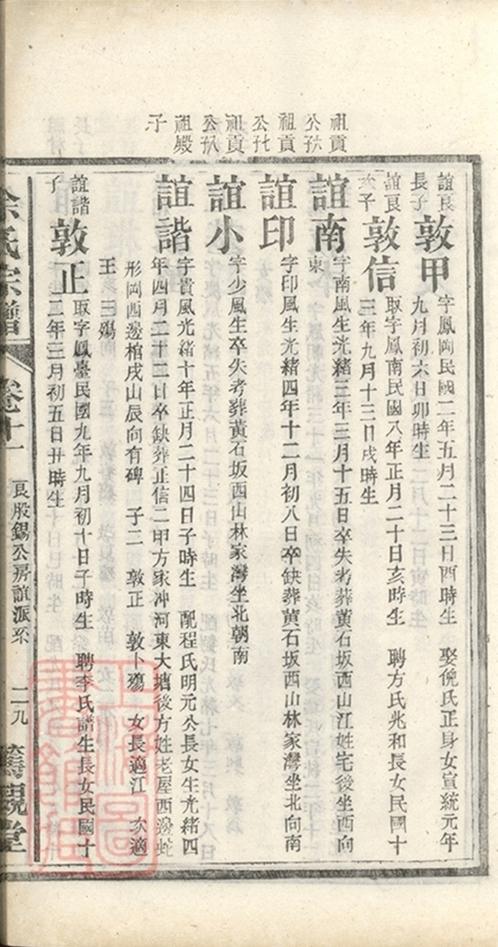 祖貢
公孙
祖貢
公孙
祖貢
公孙
祖殿
子
誼良
長子
敦甲
字鳳岡民國二年五月二十三日酉時生 娶倪氏正身女宣統元年
九月初六日卯時生
誼良
次子
敦信
取字鳳南民國八年正月二十日亥時生 聘方氏兆和長女民國十
三年九月十三日戌時生
誼南
字南風生光緒三年三月十五日卒失考葬黃石坂西山江姓宅後坐西向
東
誼印
字印風生光緒四年十二月初八日卒缺葬黃石坂西山林家灣坐北向南
誼小
字少風生卒失考葬黃石坂西山林家灣坐北朝南
誼諧
字貴風光緒十年正月二十四日子時生 配程氏明元公長女生光緒四
年四月二十二日卒缺葬正信二甲方家冲河東大塘後方姓老屋西邊蛇
形岡西邊棺戌山辰向有碑 子二 敦正 敦卜殤 女長適江 次適
王 三殤
誼諧
子
敦正
取字鳳臺民國九年九月初十日子時生 聘李氏諧生長女民國十
二年三月初五日丑時生
余氏宗譜
卷十一
良股錫公房誼派系
二九
篤親堂